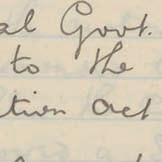 al Govt.
to the
tion act